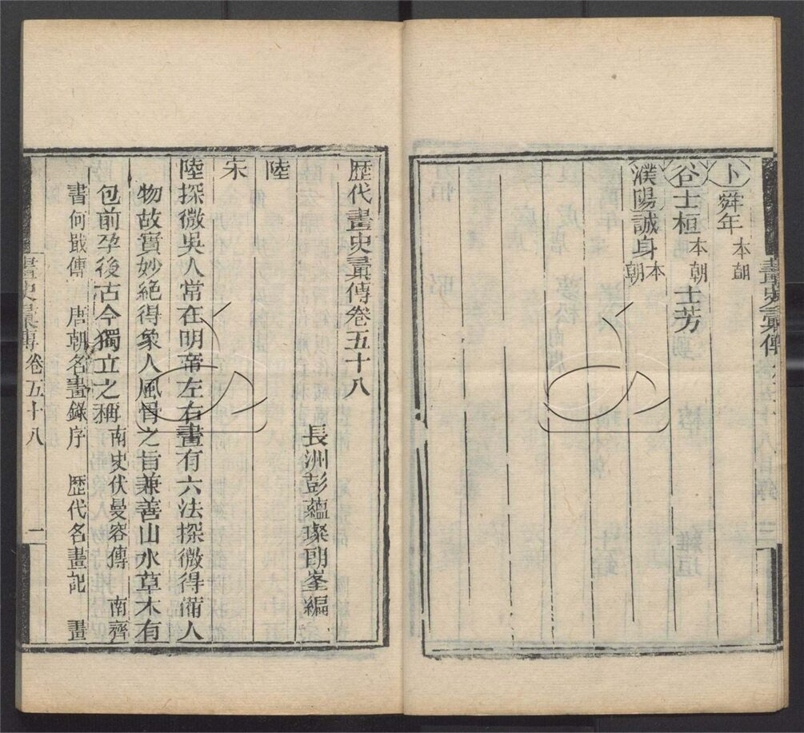 卜 舜年 本朝
谷 士桓 本朝 士芳
濮陽 誠身 本朝
歷代畫史彙傳卷五十八
長洲彭蘊璨朗峯編
陸
宋
陸探微吳人常在明帝左右畫有六法探微得備人
物故實妙絕得象人風骨之旨兼善山水草木有
包前孕後古今獨立之稱 南史伏曼容傳 南齊
書何戢傳 唐朝名畫錄序 歷代名畫記 畫
畫史彙傳 卷五十八 二